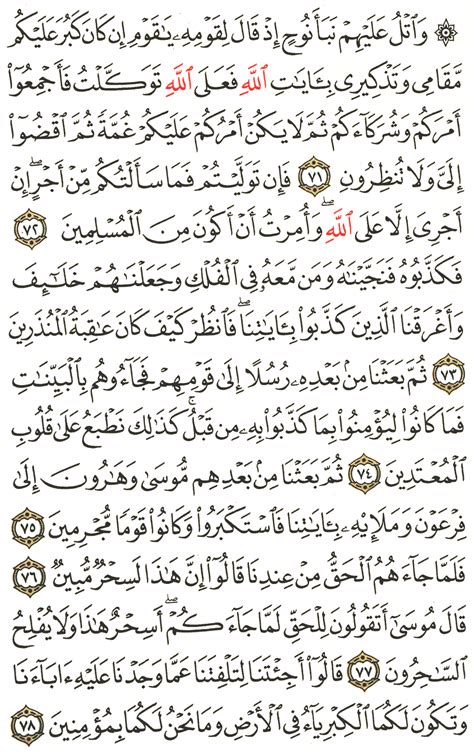 ۞ وَٱتۡلُ عَلَيۡهِمۡ نَبَأَ نُوحٍ إِذۡ قَالَ لِقَوۡمِهِۦ يَٰقَوۡمِ إِن كَانَ كَبُرَ عَلَيۡكُم
مَّقَامِي وَتَذۡكِيرِي بِـَٔايَٰتِ ٱللَّهِ فَعَلَى ٱللَّهِ تَوَكَّلۡتُ فَأَجۡمِعُوٓاْ
أَمۡرَكُمۡ وَشُرَكَآءَكُمۡ ثُمَّ لَا يَكُنۡ أَمۡرُكُمۡ عَلَيۡكُمۡ غُمَّةٗ ثُمَّ ٱقۡضُوٓاْ
إِلَيَّ وَلَا تُنظِرُونِ ٧١ فَإِن تَوَلَّيۡتُمۡ فَمَا سَأَلۡتُكُم مِّنۡ أَجۡرٍۖ إِنۡ
أَجۡرِيَ إِلَّا عَلَى ٱللَّهِۖ وَأُمِرۡتُ أَنۡ أَكُونَ مِنَ ٱلۡمُسۡلِمِينَ ٧٢
فَكَذَّبُوهُ فَنَجَّيۡنَٰهُ وَمَن مَّعَهُۥ فِي ٱلۡفُلۡكِ وَجَعَلۡنَٰهُمۡ خَلَٰٓئِفَ
وَأَغۡرَقۡنَا ٱلَّذِينَ كَذَّبُواْ بِـَٔايَٰتِنَاۖ فَٱنظُرۡ كَيۡفَ كَانَ عَٰقِبَةُ ٱلۡمُنذَرِينَ
٧٣ ثُمَّ بَعَثۡنَا مِنۢ بَعۡدِهِۦ رُسُلًا إِلَىٰ قَوۡمِهِمۡ فَجَآءُوهُم بِٱلۡبَيِّنَٰتِ
فَمَا كَانُواْ لِيُؤۡمِنُواْ بِمَا كَذَّبُواْ بِهِۦ مِن قَبۡلُۚ كَذَٰلِكَ نَطۡبَعُ عَلَىٰ قُلُوبِ
ٱلۡمُعۡتَدِينَ ٧٤ ثُمَّ بَعَثۡنَا مِنۢ بَعۡدِهِم مُّوسَىٰ وَهَٰرُونَ إِلَىٰ
فِرۡعَوۡنَ وَمَلَإِيْهِۦ بِـَٔايَٰتِنَا فَٱسۡتَكۡبَرُواْ وَكَانُواْ قَوۡمٗا مُّجۡرِمِينَ ٧٥
فَلَمَّا جَآءَهُمُ ٱلۡحَقُّ مِنۡ عِندِنَا قَالُوٓاْ إِنَّ هَٰذَا لَسِحۡرٞ مُّبِينٞ ٧٦
قَالَ مُوسَىٰٓ أَتَقُولُونَ لِلۡحَقِّ لَمَّا جَآءَكُمۡۖ أَسِحۡرٌ هَٰذَا وَلَا يُفۡلِحُ
ٱلسَّٰحِرُونَ ٧٧ قَالُوٓاْ أَجِئۡتَنَا لِتَلۡفِتَنَا عَمَّا وَجَدۡنَا عَلَيۡهِ ءَابَآءَنَا
وَتَكُونَ لَكُمَا ٱلۡكِبۡرِيَآءُ فِي ٱلۡأَرۡضِ وَمَا نَحۡنُ لَكُمَا بِمُؤۡمِنِينَ ٧٨